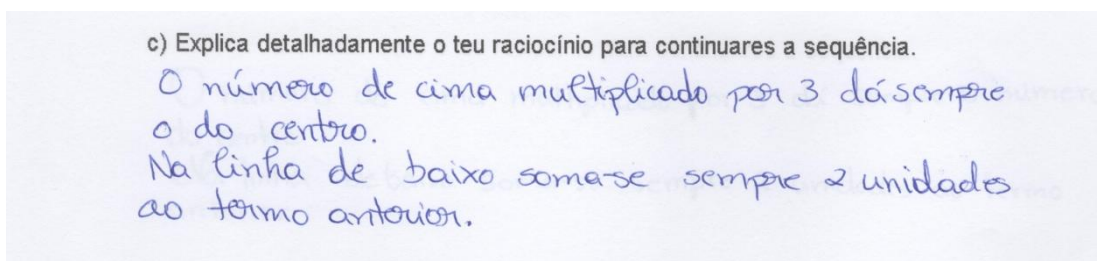 c) Explica detalhadamente o teu raciocínio para continuares a sequência.
O número de cima multiplicado por 3 dá sempre
o do centro.
Na linha de baixo soma-se sempre 2 unidades
ao termo anterior.